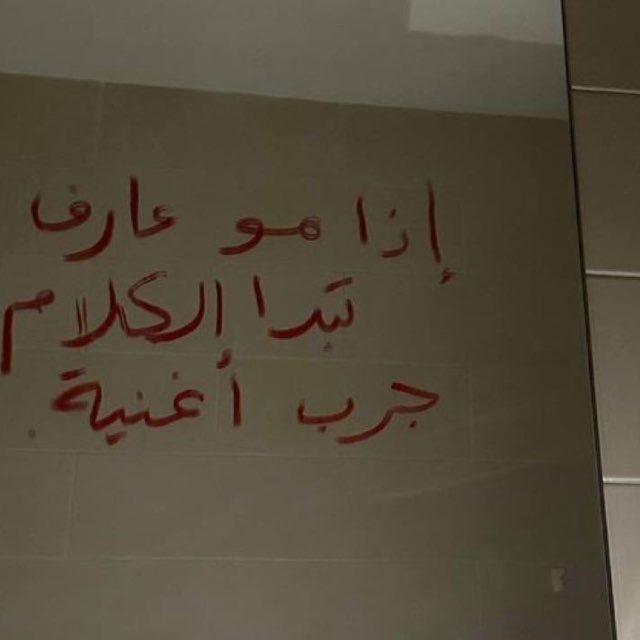 إذا مو عارف
تبدا الكلام
جرب أغنية